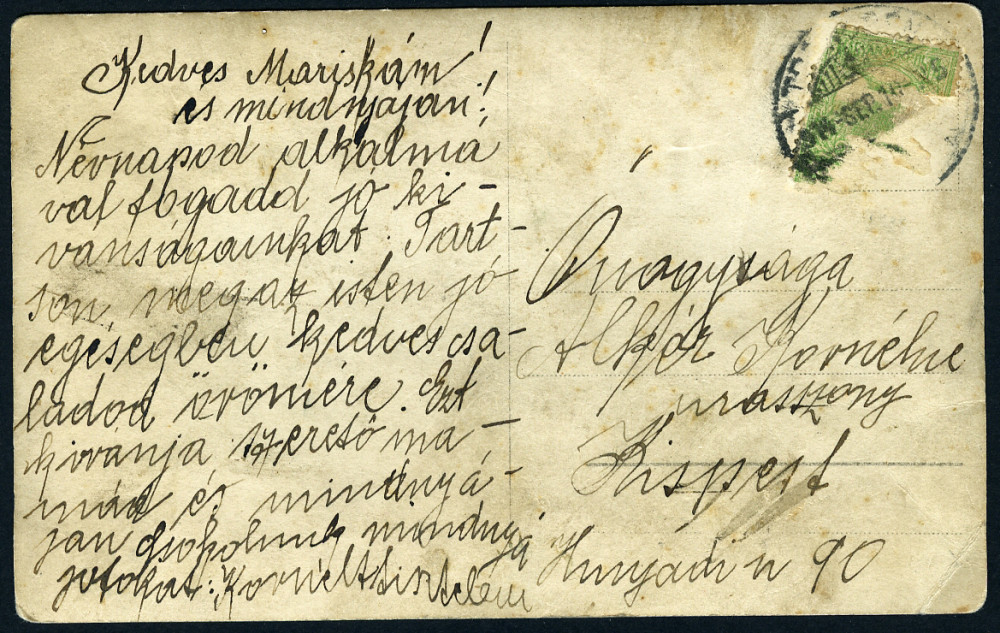 Kedves Mariskám!
és mindnyáján!
Névnapod alkalmá
val fogadd jó ki-
vánságainkat. Tart-
son meg az isten jó
egéségben kedves csa-
ládod örömére. Ezt
kivánja szerető ma-
mád és mindnyá-
jan csokolunk mindnyá
jotokat: Kornélt tisztelem
Őnagysága
Alkér Kornélné
urasszony
Kispest
Hunyadi u 90